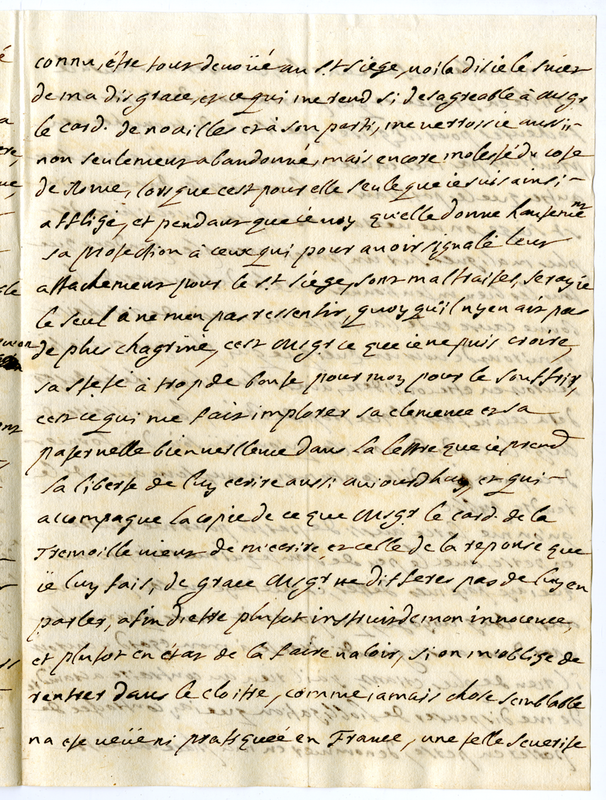 connu, être tout devoüé au s.t siège, voila disie le suiet
de ma disgrace, et ce qui me rend si desagreable à Msgr
le card. de noailles et à son parti, me verrois ie aussi
non seulement abandonné, mais encore molesté du coste
de Rome, lorsque c'est pour elle seule que ie suis ainsi
affligé, et pendant que ie voy qu'elle donne hautem.nt
sa protection à ceux qui pour avoir signalé leur
attachement pour le s.t siège, sont maltraités, seray ie
le seul à ne m'en pas ressentir, quoy qu'il n'y en ait pas
de plus chagriné, c'est Msgr ce que ie ne puis croire,
sa stété à trop de bonté pour moy pour le souffrir,
c'est ce qui me fait implorer sa clemence et sa
paternelle bienveillence dans la lettre que ie prend
la liberté de luy ecrire aussi auiourdhuy, et qui
accompagne la copie de ce que Msgr le card. de la
Tremoille vient de m'ecrire, et celle de la reponse que
ie luy fais, de grace Msgr ne differes pas de luy en
parler, afin d'etre plutot instruit de mon innocence,
et plutot en état de la faire valoir, si on m'oblige de
rentrer dans le cloitre, comme iamais chose semblable
na esté veüe ni pratiquée en France, une telle severité